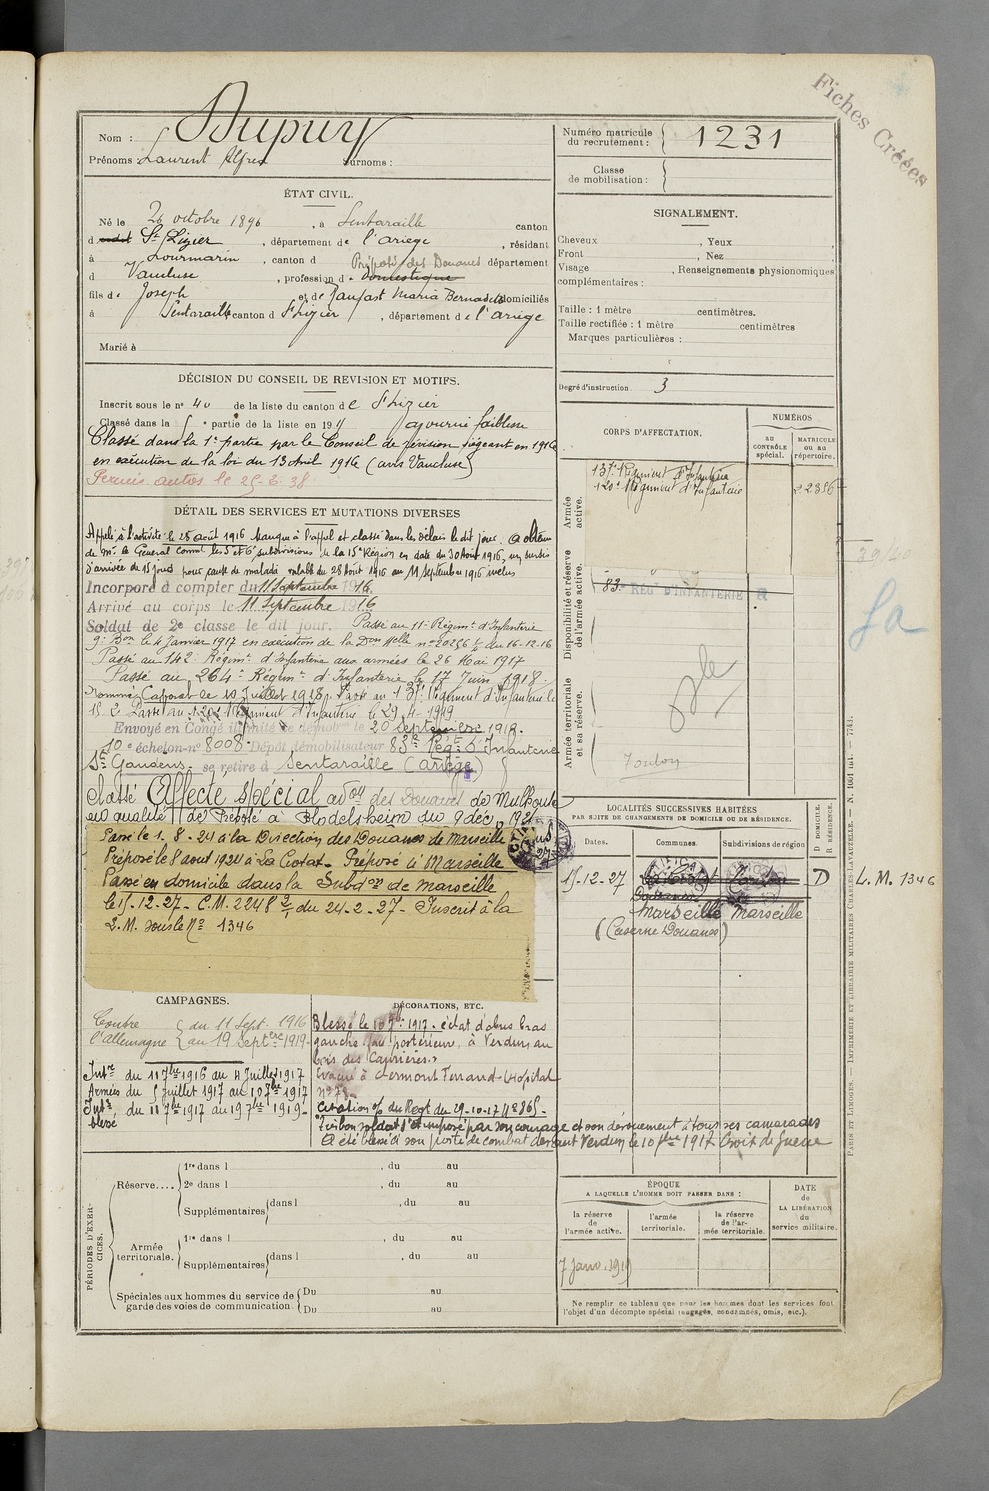 Fiches Créées
Nom : Dupuy
Prénoms : Laurent Alfred Surnoms :
Numéro matricule du recrutement : 1231
Classe de mobilisation :
ÉTAT CIVIL.
Né le 26 octobre 1896, à Sentaraille canton
d St Lizier, département de l'ariège, résidant
à Lourmarin, canton d Préposé des Douanes département
d Vaucluse, profession de domestique
fils de Joseph et de Jaufast Maria Bernade domiciliés
à Sentaraille canton d St Lizier, département de l'ariège
Marié à
SIGNALEMENT.
Cheveux , Yeux ,
Front , Nez
Visage , Renseignements physionomiques
complémentaires :
Taille : 1 mètre centimètres.
Taille rectifiée : 1 mètre centimètres
Marques particulières :
Degré d'instruction 3
DÉCISION DU CONSEIL DE REVISION ET MOTIFS.
Inscrit sous le n° 40 de la liste du canton de St Lizier
Classé dans la e partie de la liste en 191 ajourné faiblesse
Classé dans la 1e partie par le Conseil de révision siégeant en 1916
en exécution de la loi du 13 Avril 1916 (avis Vaucluse)
Permis autos le 25-6-38
DÉTAIL DES SERVICES ET MUTATIONS DIVERSES
Appelé à l'activité le 28 août 1916 manque à l'appel et classé dans les délais le dit jour. A obtenu
de Mr le Général Commt les 5 et 6e subdivisions de la 15e Région en date du 30 Août 1916, un sursis
d'arrivée de 15 jours pour cause de maladie valable du 28 Août 1916 au 11 Septembre 1916 inclus
Incorporé à compter du 11 Septembre 1916.
Arrivé au corps le 11 Septembre 1916
Soldat de 2e classe le dit jour. Passé au 11e Régimt d'Infanterie
9e Bon le 4 Janvier 1917 en exécution de la Don Melle n° 20256 du 16-12-16
Passé au 142e Régimt d'Infanterie aux armées le 26 Mai 1917
Passé au 264e Régimt d'Infanterie le 17 Juin 1918.
Nommé Caporal le 10 Juillet 1918. Passé au 137e Régiment d'Infanterie le
15-2 Passé au 120e Régiment d'Infanterie le 29-4-1919
Envoyé en Congé illimité de démob le 20 Septembre 1919.
10e échelon n° 8008 Dépôt démobilisateur 83e Régt d'Infanterie
St Gaudens. se retire à Sentaraille (ariège)
Classé Affecté spécial adon des Douanes de Mulhouse
en qualité de Préposé à Blodelsheim du 9 déc 192
Passé le 1-8-24 à la Direction des Douanes de Marseille
Préposé le 8 aout 1924 à La Ciotat - Préposé à Marseille
Passé en domicile dans la Subdon de Marseille
le 15-12-27 - C.M. 2248 2/1 du 24-2-27 - Inscrit à la
L.M. sous le N° 1346
CORPS D'AFFECTATION.
NUMÉROS
au contrôle spécial.
matricule ou au répertoire.
Armée active.
137e Régiment d'Infanterie
120e Régiment d'Infanterie
22356
Disponibilité et réserve de l'armée active.
83e REG D'INFANTERIE
Armée territoriale et sa réserve.
Toulon
LOCALITÉS SUCCESSIVES HABITÉES
PAR SUITE DE CHANGEMENTS DE DOMICILE OU DE RÉSIDENCE.
Dates. Communes. Subdivisions de région
D DOMICILE. R RÉSIDENCE.
15-12-27 D L.M. 1346
Marseille Marseille
(Caserne Douanes)
CAMPAGNES.
Contre l'Allemagne du 11 Sept. 1916
au 19 Septbre 1919
Intre du 11 7bre 1916 au 4 Juillet 1917
Armées du 5 Juillet 1917 au 10 7bre 1917
Intr blessé du 11 7bre 1917 au 19 7bre 1919
DÉCORATIONS, ETC.
Blessé le 10 7bre 1917. éclat d'obus bras
gauche face postérieure, à Verdun au
bois des Caurières.
Evacué à Clermont Ferrand - Hôpital
n° 78
Citation o/ du Regt du 29-10-17 N° 865 -
"Très bon soldat s'est imposé par son courage et son dévouement à tous ses camarades
A été blessé à son poste de combat devant Verdun le 10 7bre 1917 Croix de Guerre
PÉRIODES D'EXERCICES.
Réserve....
1re dans l , du au
2e dans l , du au
Supplémentaires dans l , du au
Armée territoriale.
1re dans l , du au
Supplémentaires dans l , du au
Spéciales aux hommes du service de garde des voies de communication.
Du au
Du au
ÉPOQUE
A LAQUELLE L'HOMME DOIT PASSER DANS :
la réserve de l'armée active.
l'armée territoriale.
la réserve de l'armée territoriale.
DATE de LA LIBÉRATION du service militaire.
7 Janv. 1919
Ne remplir ce tableau que pour les hommes dont les services font
l'objet d'un décompte spécial (engagés, condamnés, omis, etc.).
PARIS ET LIMOGES. — IMPRIMERIE ET LIBRAIRIE MILITAIRES CHARLES-LAVAUZELLE.